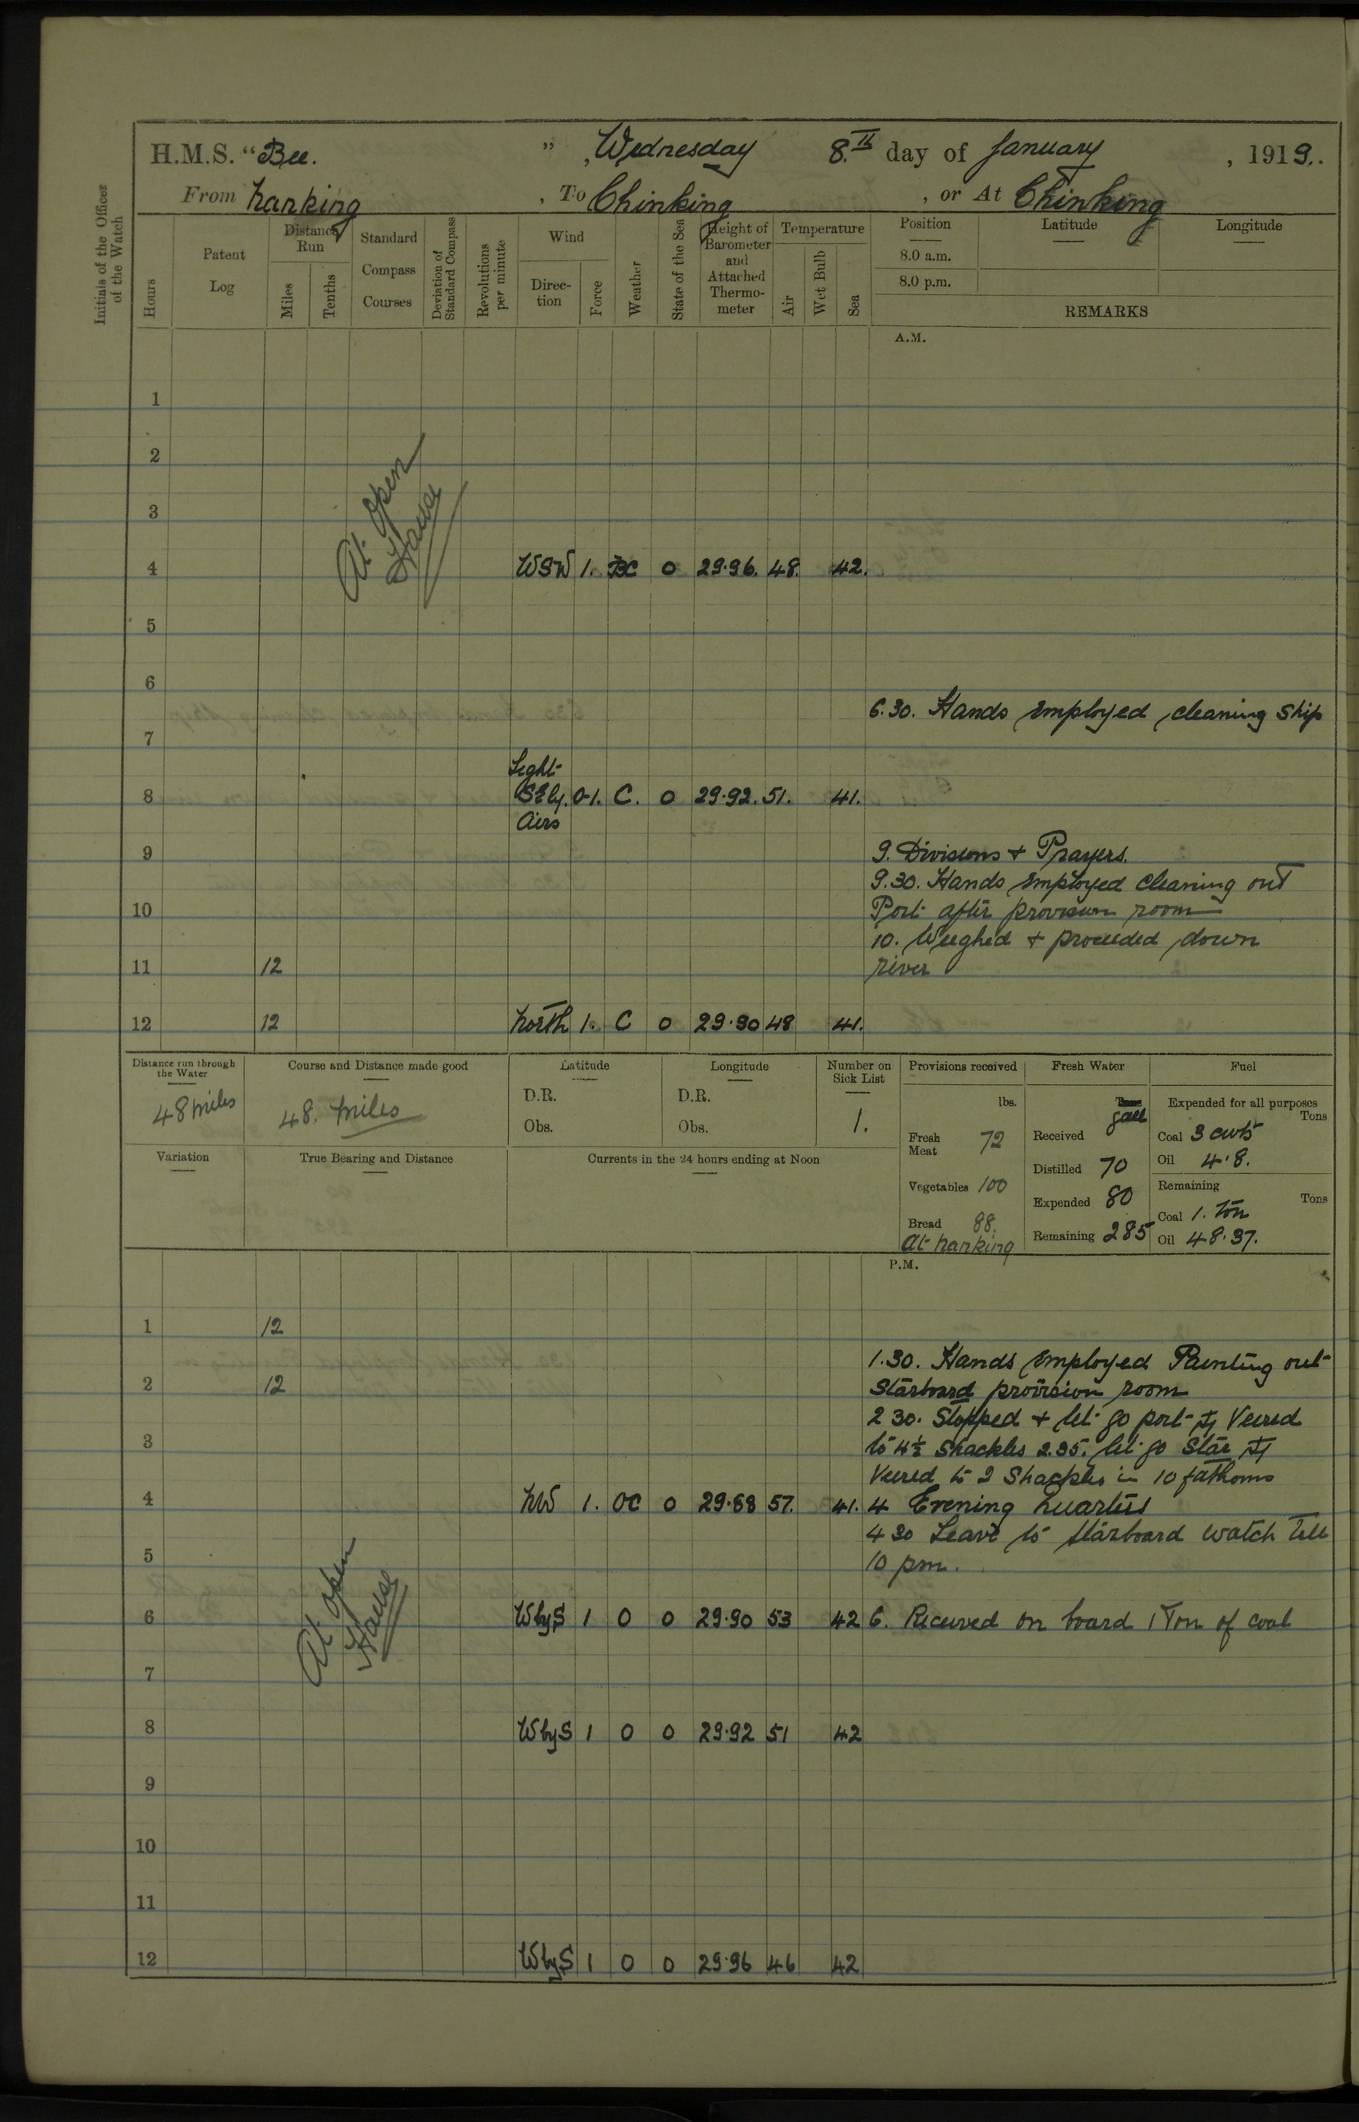 H.M.S. "Bee. " , Wednesday 8.th day of January , 1919..
From Nanking , To Chinking , or At Chinking
Initials of the Officer of the Watch
Hours
Patent Log
Distance Run
Miles
Tenths
Standard Compass Courses
Deviation of Standard Compass
Revolutions per minute
Wind
Direction
Force
Weather
State of the Sea
Height of Barometer and Attached Thermometer
Temperature
Air
Wet Bulb
Sea
Position
8.0 a.m.
8.0 p.m.
Latitude
Longitude
REMARKS
A.M.
1
2
3
At open Hawse
4 WSW 1. BC 0 29.96. 48. 42.
5
6
6.30. Hands employed cleaning ship
7
Light
8 SEly. 0-1. C. 0 29.92. 51. 41.
Airs
9 9. Divisions + Prayers.
9.30. Hands employed cleaning out
10 Port after provision room
10. Weighed + proceeded down
11 12 river
12 12 North 1. C 0 29.90 48 41.
Distance run through the Water
48 miles
Course and Distance made good
48. miles
Latitude
D.R.
Obs.
Longitude
D.R.
Obs.
Number on Sick List
1.
Provisions received
lbs.
Fresh Meat 72
Vegetables 100
Bread 88.
At Nanking
Fresh Water
Tons
gall
Received
Distilled 70
Expended 80
Remaining 285
Fuel
Expended for all purposes
Tons
Coal 3 cwts
Oil 4.8.
Remaining
Tons
Coal 1. Ton
Oil 48.37.
Variation
True Bearing and Distance
Currents in the 24 hours ending at Noon
P.M.
1 12
1.30. Hands employed Painting out
2 12 Starboard provision room
2 30. Stopped + let go port ⚓ Veered
3 to 4½ Shackles 2.35. let go Star ⚓
Veered to 2 Shackles in 10 fathoms
4 NW 1. OC 0 29.88 57. 41. 4 Evening Quarters
4 30 Leave to starboard watch till
5 10 pm.
At open Hawse
6 WbyS 1 0 0 29.90 53 42 6. Received on board 1 Ton of coal
7
8 WbyS 1 0 0 29.92 51 42
9
10
11
12 WbyS 1 0 0 29.96 46 42